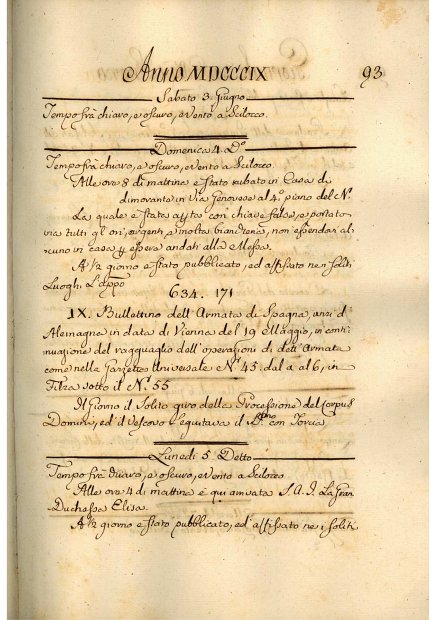 Anno MDCCCIX 93
Sabato 3. Giugno
Tempo frà chiaro, e oscuro, e Vento a Scilocco.
Domenica 4. Dº
Tempo frà chiaro, e oscuro, e Vento a Scilocco.
Alle ore 8 di mattina è stato rubato in Casa di
dimorante in Via Genovese al 4º piano del Nº
La quale è stata apta con chiave false, e portato
via tutti gl'ori, argenti, e molta biancheria, non essendoci al-
cuno in casa p essere andati alla Messa.
A ½ giorno è stato pubblicato, ed affissato ne i soliti
Luoghi L'appº
634. 171
IX. Bullettino dell'Armata di Spagna, anzi d'
Alemagne in data di Vienna del 19 Maggio, in conti-
nuazione del ragguaglio dell'operazioni di dett'Armata
come nella Gazzetta Universale Nº 45. dal a al 6, in
Filza sotto il Nº 55
Il Giorno il Solito giro della Processione del Corpus
Domini, ed il Vescovo equitava il con Torcia
Lunedi 5. Detto
Tempo frà chiaro, e oscuro, e Vento a Scilocco.
Alle ore 4 di mattina è qui arrivata S. A. I. La Gran
Duchessa Elisa.
A ½ giorno è stato pubblicato, ed affissato ne i soliti